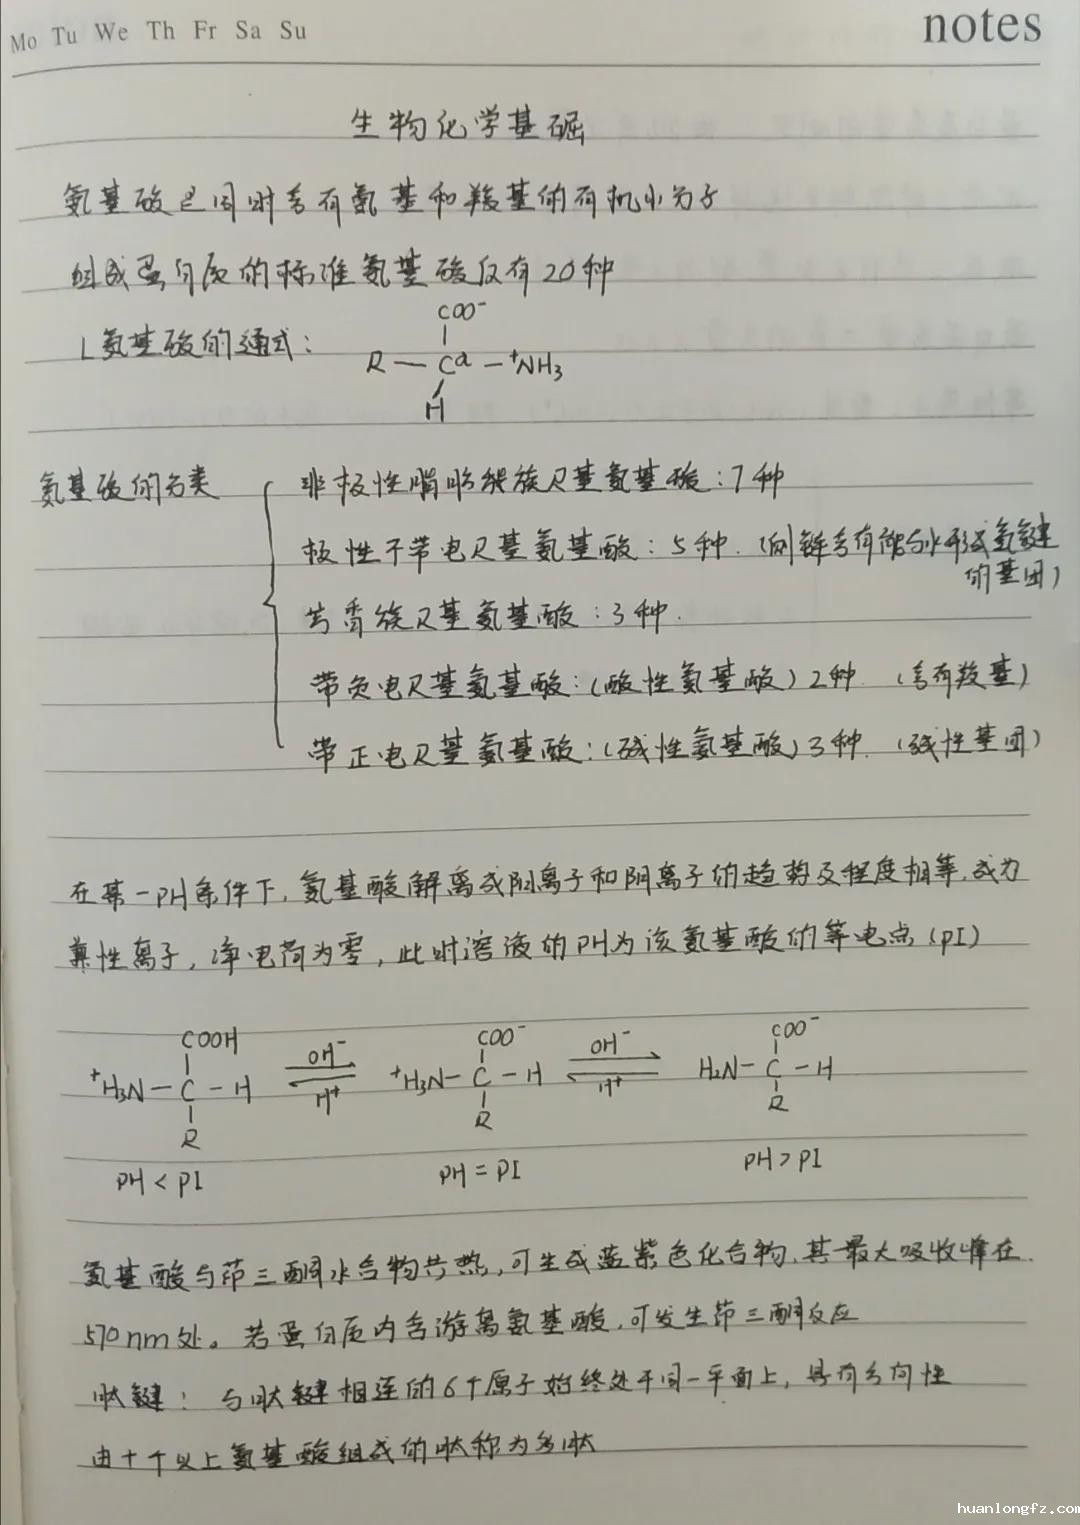 Mo Tu We Th Fr Sa Su
notes
生物化学基础
氨基酸是同时含有氨基和羧基的有机小分子
组成蛋白质的标准氨基酸仅有20种
L氨基酸的通式：
COO⁻
R — Cα — ⁺NH3
H
氨基酸的分类
非极性脂肪族R基氨基酸：7种
极性不带电R基氨基酸：5种.（侧链含有能与水形成氢键
的基团）
芳香族R基氨基酸：3种.
带负电R基氨基酸：（酸性氨基酸）2种.（含有羧基）
带正电R基氨基酸：（碱性氨基酸）3种.（碱性基团）
在某一PH条件下，氨基酸解离成阳离子和阴离子的趋势及程度相等，成为
兼性离子，净电荷为零，此时溶液的PH为该氨基酸的等电点（PI）
COOH
⁺H3N — C — H
R
PH < PI
OH⁻
H⁺
COO⁻
⁺H3N — C — H
R
PH = PI
OH⁻
H⁺
COO⁻
H2N — C — H
R
PH > PI
氨基酸与茚三酮水合物共热，可生成蓝紫色化合物，其最大吸收峰在
570nm处。若蛋白质内含游离氨基酸，可发生茚三酮反应
肽键：与肽键相连的6个原子始终处于同一平面上，具有方向性
由十个以上氨基酸组成的肽称为多肽
huanlongfz.com